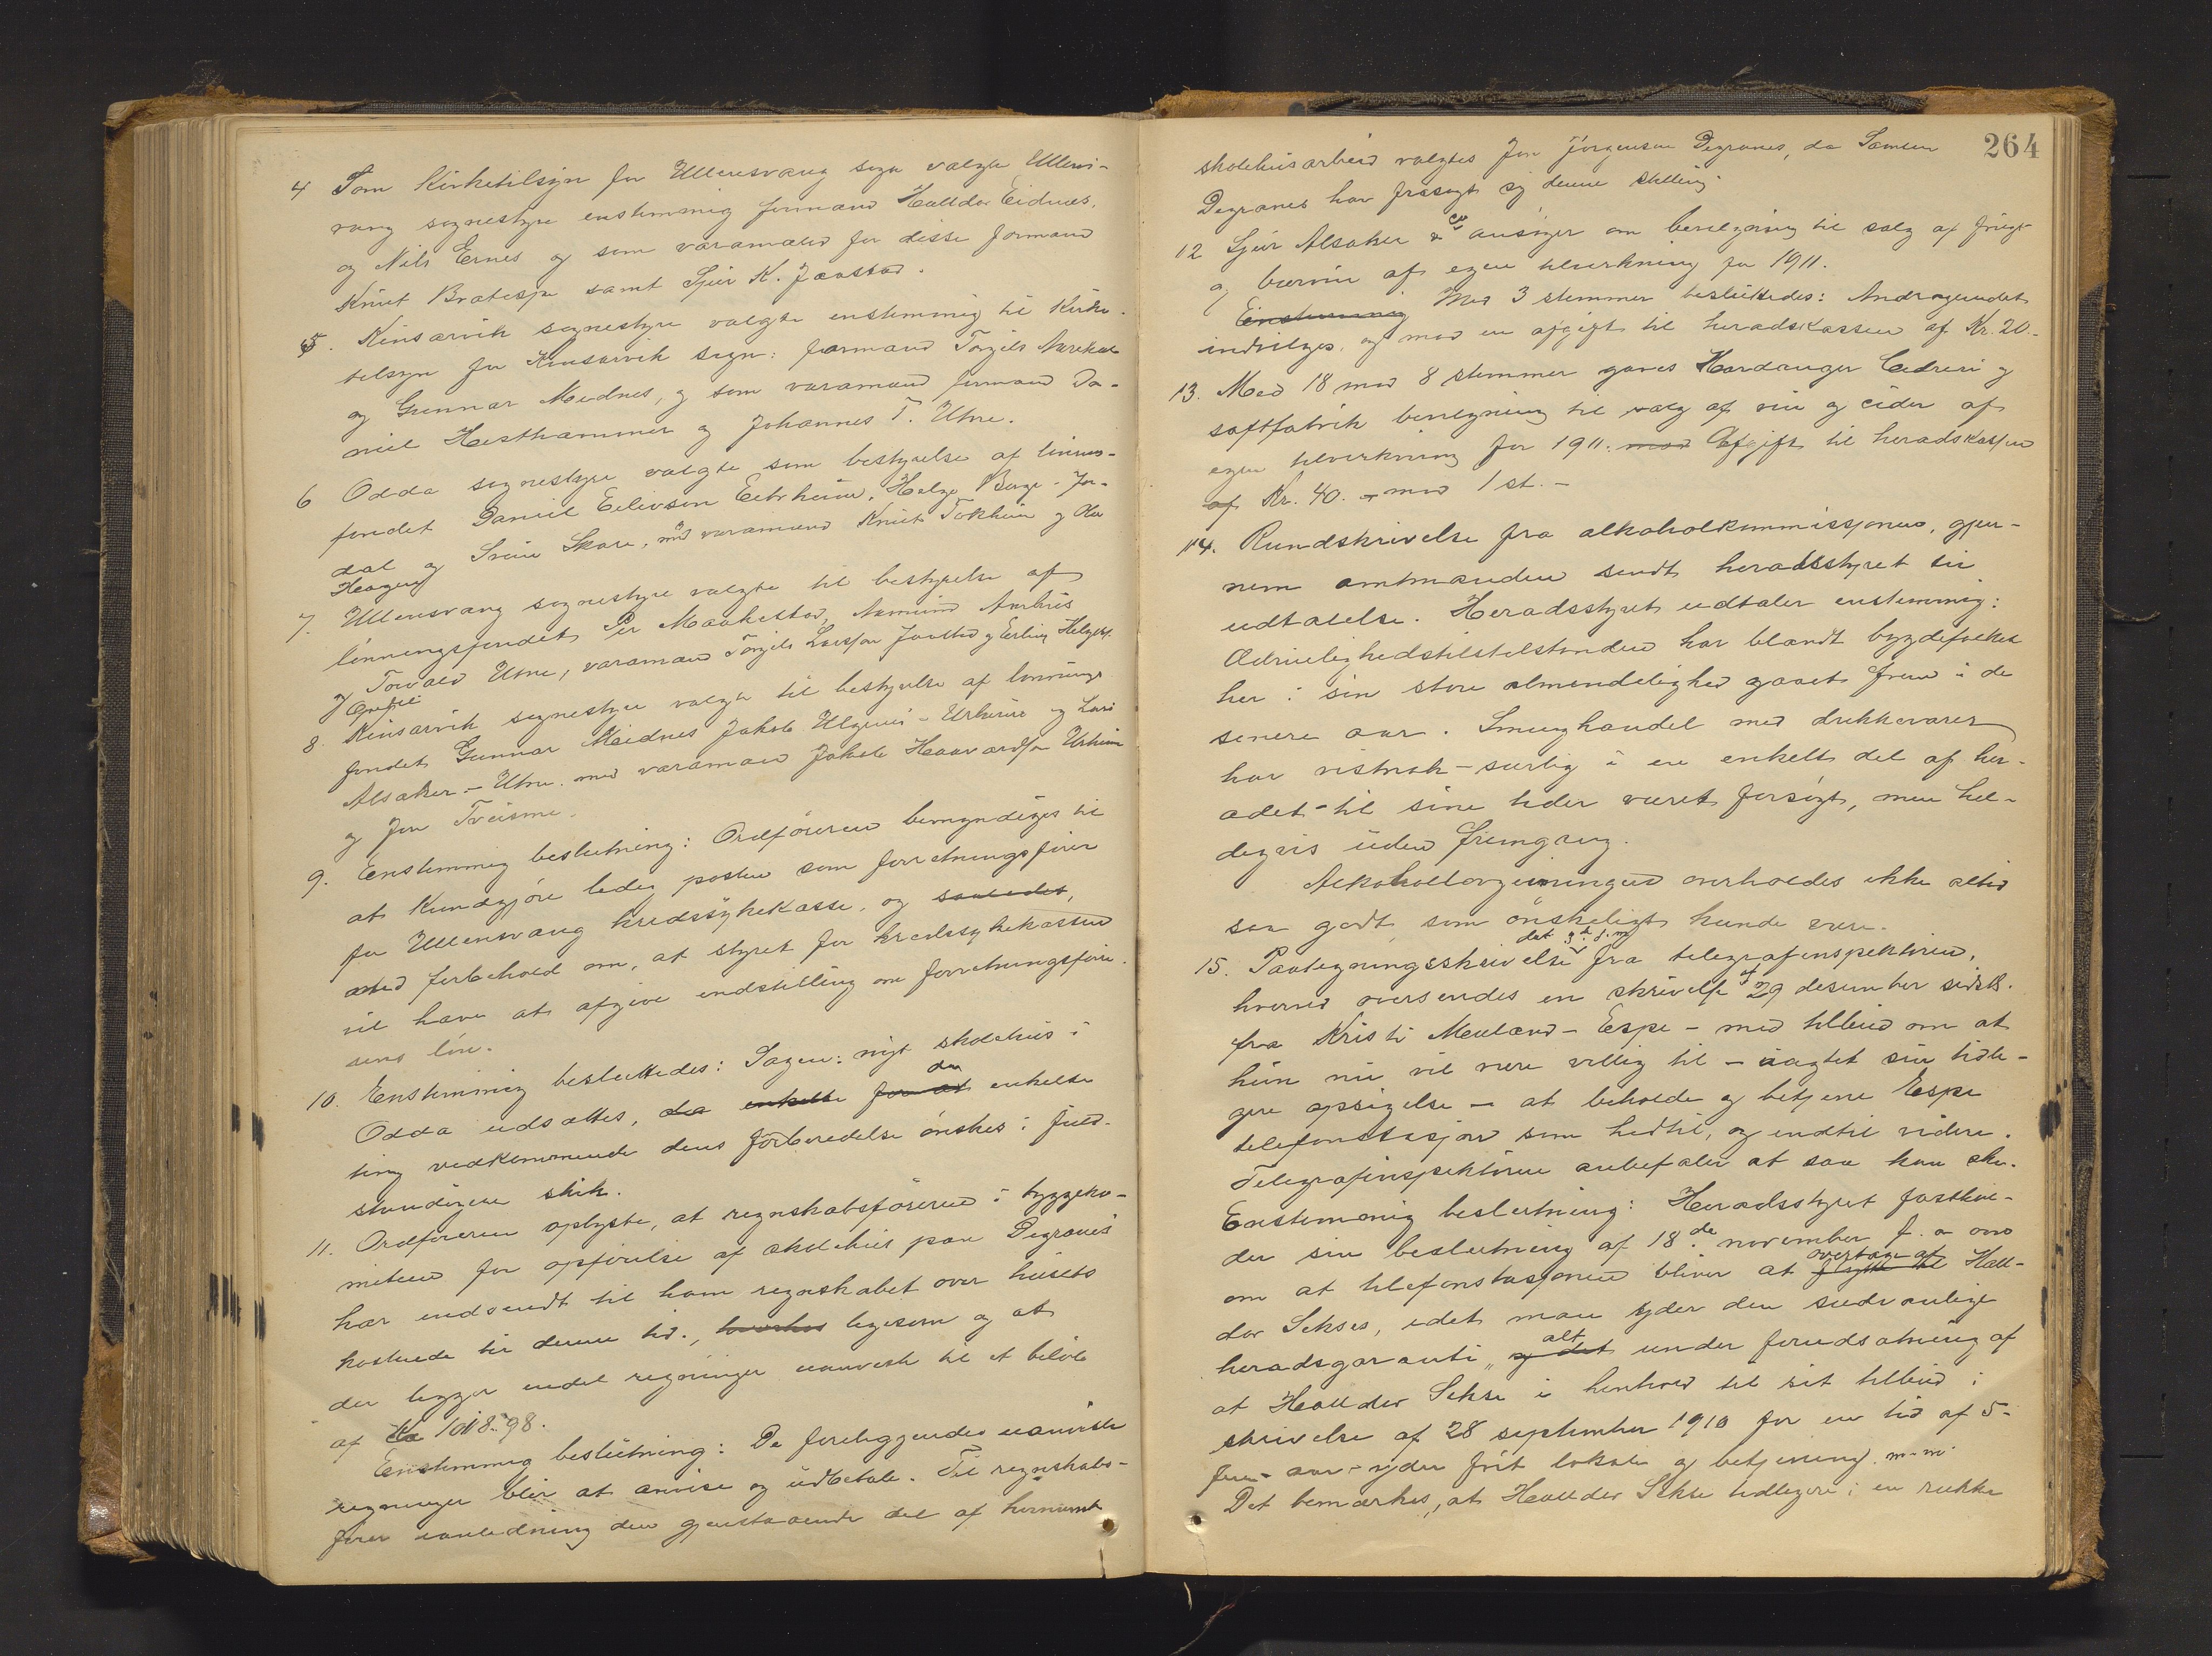 4 Som Kirketilsyn for Ullensvang sogn valgte Ullens-
vang sognestyre enstemmig formand Halldor Eidnes,
og Nils Ernes og som varamænd for disse formand
Knut Bratespe samt Sjur K. Jaastad.
5. Kinsarvik sognestyre valgte enstemmig til Kirke-
tilsyn for Kinsarvik sogn: formand Torgils
og Gunnar Meidnes, og som varamænd formand Da-
niel Hesthammer og Johannes T. Utne.
6 Odda sognestyre valgte som bestyrelse af lönnings-
fondet Daniel Eilivson Eitrheim, Helge Berge-Jor-
dal og Svein Skare, med varamænd Knut Tokheim og
Haagen
7. Ullensvang sognestyre valgte til bestyrelse af
lönningsfondet Per Maakestad, Aamund
og Torvald Utne, varamænd Torgils Larsson Jaastad og Erling Helgess.
Opedal
8. Kinsarvik sognestyre valgte til bestyrelse af lonnings
fondet Gunnar Meidnes Jakob Ulgenes-Urheim og Lars
Alsaker-Utne med varamænd Jakob Haavardson Urheim
og Jon Tveisme.
9. Enstemmig beslutning: Ordföreren bemyndiges til
at Kundgjöre ledig posten som forretningsförer
for Ullensvang kredssykekasse, og saaledes,
med forbehold om, at styret for kredssykekassen
vil have at afgive indstilling om forretningsföre-
rens lön.
10. Enstemmig besluttedes: Sagen: nyt skolehus i
Odda udsættes, da enkelte for at da enkelte
ting vedkommende dens förberedelse önskes i fuld-
stændigere skik.
11. Ordföreren oplyste, at regnskabsföreren i byggeko-
miteen for opförelse af skolehus paa Degranes
har indsendt til ham regnskabet over husets
kostende til denne tid., hvorhos ligesom og at
der ligger endel regninger uanvist til et belöb
af Kr 1018.98.
Enstemmig beslutning: De foreliggende uanviste
regninger blir at anvise og udbetale. Til regnskabs-
förer i anledning den gjenstaaende del af hernævnte
264
skolehusarbeid valgtes Jon Jörgensen Degranes, da Samson
Degranes har frasagt sig denne stilling.
12 Sjur Alsaker ansöger om bevilgning til salg af frugt-
og bærvin af egen tilvirkning for 1911.
Enstemmig Med 3 stemmer besluttedes: Andragendet
indvilges, og mod en afgift til heradskassen af Kr. 20.-
13. Med 18 mod 8 stemmer gaves Hardanger Cedreri og
saftfabrik bevilgning til salg af vin og cider af
egen tilvirkning for 1911. mod Afgift til heradskassen
af Kr. 40. - mod 1 st. -
14. Rundskrivelse fra alkoholkommissjonen, gjen-
nem amtmanden sendt heradsstyret til
udtalelse. Heradsstyret udtaler enstemmig:
Ædruelighedstilstelstanden har blandt bygdefolket
her i sin store almendelighed gaaet frem i de
senere aar. Smughandel med drikkevarer
har vistnok - særlig i en enkelt del af her-
adet - til sine tider været forsögt, men hel-
digvis uden fremgang.
Alkohollovgivningen overholdes ikke altid
saa godt, som önskeligt kunde være.
15. Paategningsskrivelse dat 3. d. m. fra telegrafinspektören,
hvorved oversendes en skrivelse af 29 desember sidstl.
fra Kristi Meeland - Espe - med tilbud om at
hun nu vil være villig til - uagtet sin tidli-
gere opsigelse - at beholde og betjene Espe
telefonstasjon som hidtil, og indtil videre.
Telegrafinspektören anbefaler at saa kan ske.
Enstemmig beslutning: Heradsstyret fasthol-
der sin beslutning af 18.de november f. a om
om at telefonstasjonen bliver at flytte til overtage af Hall-
dor Sekse, idet man yder den sedvanlige
heradsgaranti, og det alt under forudsætning af
at Halldor Sekse i henhold til sit tilbud i
skrivelse af 28 september 1910 for en tid af 5-
fem- aar - yder frit lokale og betjening m.m.
Det bemærkes, at Halldor Sekse tidligere i en række